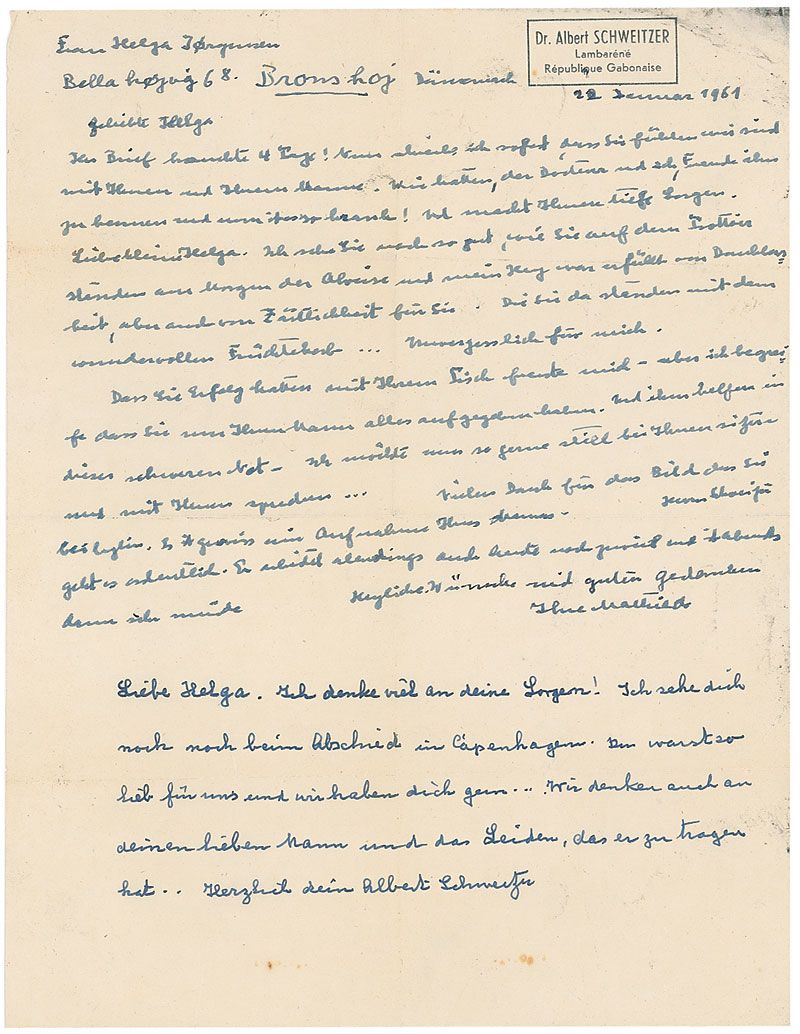 Dr. Albert SCHWEITZER
Lambaréné
République Gabonaise
Frau Helga Jørgensen
Bella højvej 68. Bronshoj Dänemark
22 Januar 1961
geliebte Helga
Ihr Brief brauchte 4 Tage! Nun ich sofort, dass Sie fühlen wir sind
mit Ihnen und Ihrem Manne. Wir hatten, der Doktor und ich, Freude ihn
zu kennen und nun ist er so krank! Und macht Ihnen tiefe Sorgen.
Liebe kleine Helga. Ich sehe Sie noch so gut, wie Sie auf dem Trottoir
standen am Morgen der Abreise und mein Herz war erfüllt von Dankbar-
keit, aber auch von Zärtlichkeit für Sie. Die Sie da standen mit dem
wundervollen Früchtekorb ... Unvergesslich für mich.
Dass Sie Erfolg hatten mit Ihrem Tisch freute mich – aber ich begrei-
fe dass Sie um Ihren Mann alles aufgegeben haben. Und ihm helfen in
dieser schweren Not – Ich möchte nun so gerne still bei Ihnen sitzen
und mit Ihnen sprechen ... Vielen Dank für das Bild das Sie
beilegten. Es ist gewiss ein Aufnahme Ihres Mannes.
geht es ordentlich. Er allerdings auch heute noch zuviel und ist abends
dann sehr müde
Herzliche Wünsche und guten Gedanken
Ihre Mathilde
Liebe Helga. Ich denke viel an deine Sorgen! Ich sehe dich
noch noch beim Abschied in Copenhagen. Du warst so
lieb für uns und wir haben dich gern ... Wir denken auch an
deinen lieben Mann und das Leiden, das er zu tragen
hat .. Herzlich dein Albert Schweitzer